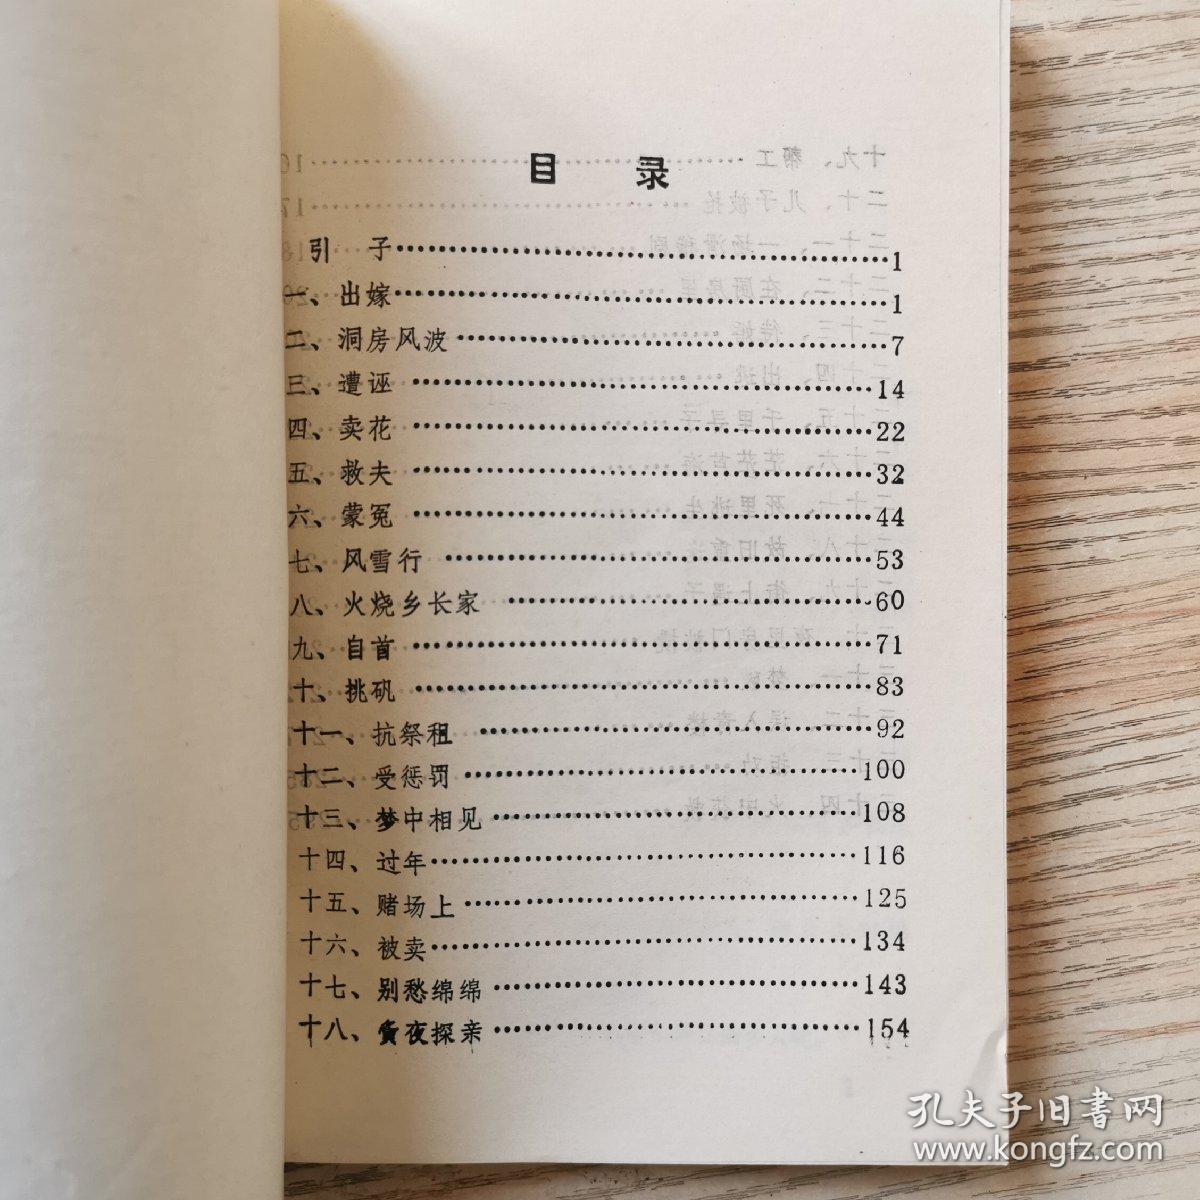 目 录
引 子……1
一、出嫁……1
二、洞房风波……7
三、遭诬……14
四、卖花……22
五、救夫……32
六、蒙冤……44
七、风雪行……53
八、火烧乡长家……60
九、自首……71
十、挑矾……83
十一、抗祭租……92
十二、受惩罚……100
十三、梦中相见……108
十四、过年……116
十五、赌场上……125
十六、被卖……134
十七、别愁绵绵……143
十八、夤夜探亲……154
孔夫子旧书网
www.kongfz.com